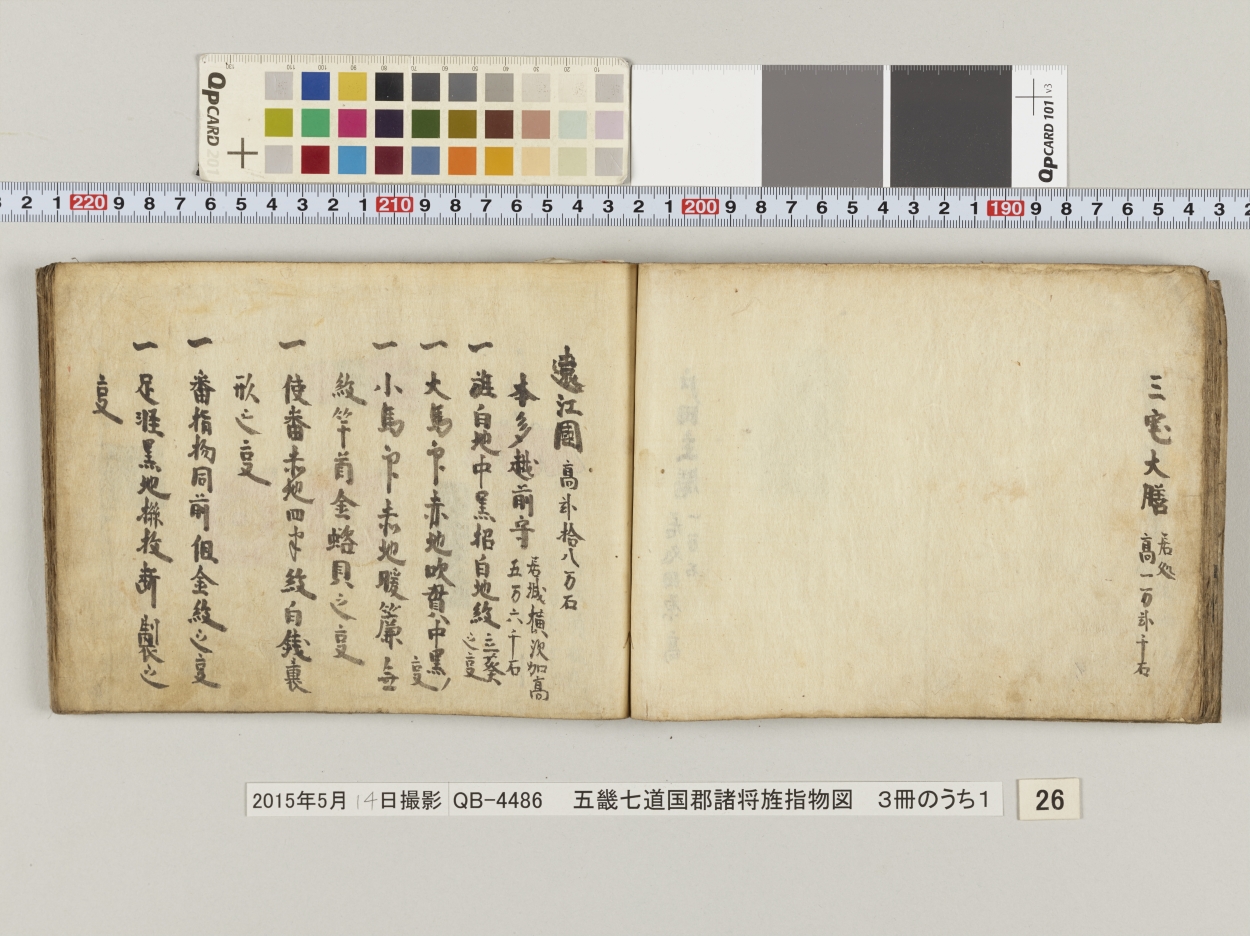 三宅大膳 居処
高一万弐千石
遠江国 高弐拾八万石
本多越前守 居城横須加高
五万六千石
一 旌白地中黒招白地紋三葵
之叓
一 大馬印赤地吹貫中黒ノ
叓
一 小馬印赤地暖簾無
紋竿首金蛤貝之叓
一 使番赤地四半紋白銭裏
形之叓
一 番指物同前但金紋之叓
一 足軽黒地
製之
叓
2015年5月14日撮影 QB-4486 五畿七道国郡諸将旌指物図 3冊のうち1
26
QPCARD 201
QPCARD 101 v3
2 1 220 9 8 7 6 5 4 3 2 1 210 9 8 7 6 5 4 3 2 1 200 9 8 7 6 5 4 3 2 1 190 9 8 7 6 5 4 3 2